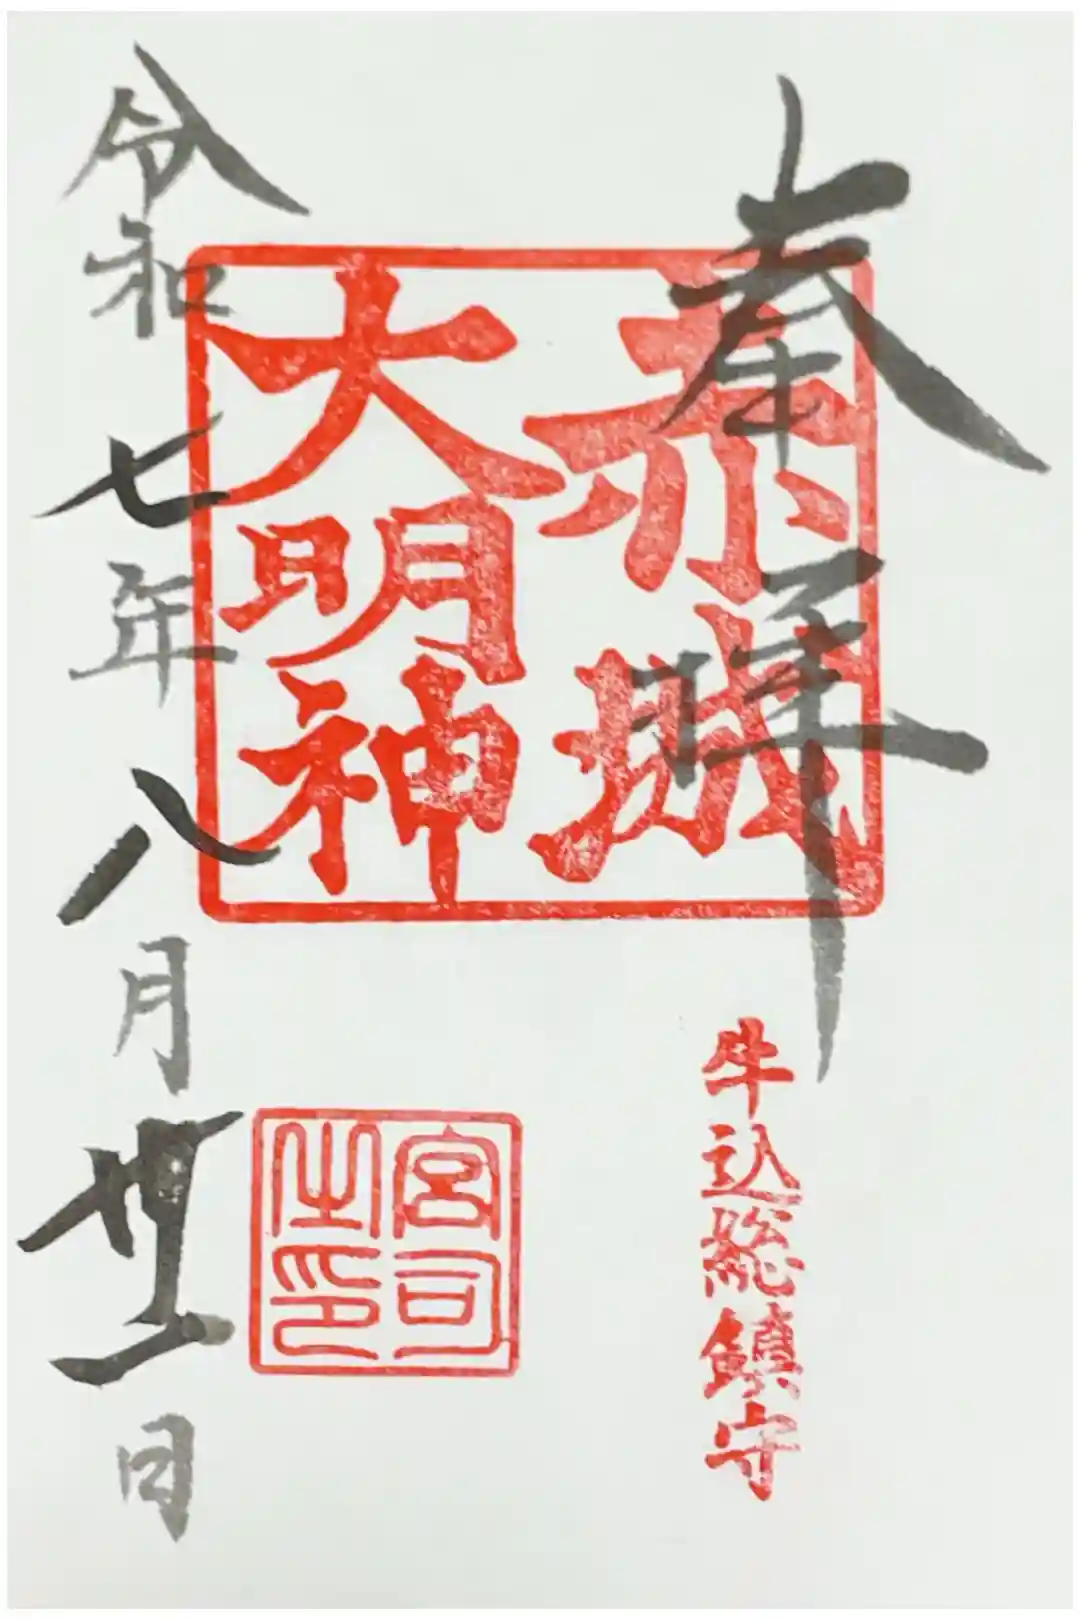 奉拝
赤城
大明神
牛込総鎮守
宮司
之印
令和七年八月 日